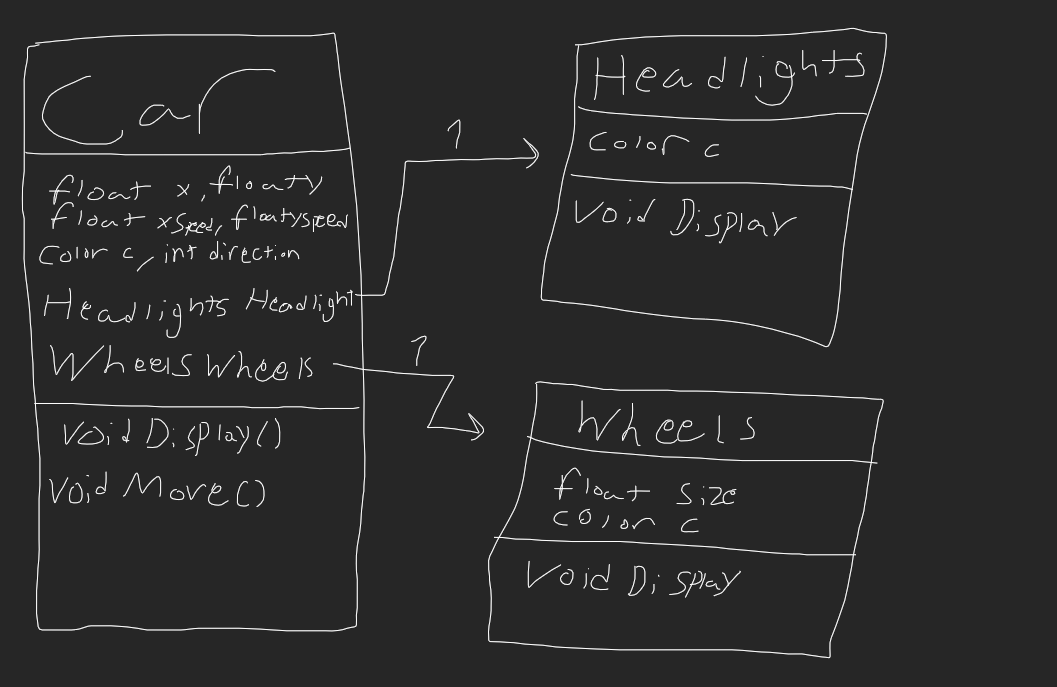 Car
float x, float y
float xspeed, float yspeed
color c, int direction
Headlights Headlight
Wheels Wheels
void Display()
void Move()
1
Headlights
color c
void Display
1
Wheels
float size
color c
void Display